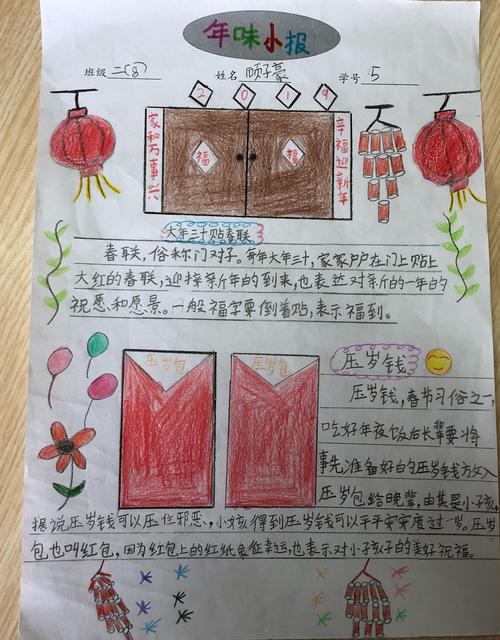 年味小报
班级 二(8) 姓名 顾子豪 学号 5
2019
家和万事兴
福 福
辛福迎新年
大年三十贴春联
春联，俗称门对子。每年大年三十，家家户户在门上贴上
大红的春联，迎接新年的到来，也表达对新的一年的
祝愿和愿景。一般福字要倒着贴，表示福到。
压岁包 压岁包
压岁钱
压岁钱，春节习俗之一，
吃好年夜饭后长辈要将
事先准备好的压岁钱方女入
压岁包给晚辈，由其是小孩。
据说压岁钱可以压住邪恶，小孩得到压岁钱可以平平安安度过一岁。压岁
包也叫红包，因为红包上的红纸象征幸运，也表示对小孩子的美好祝福。